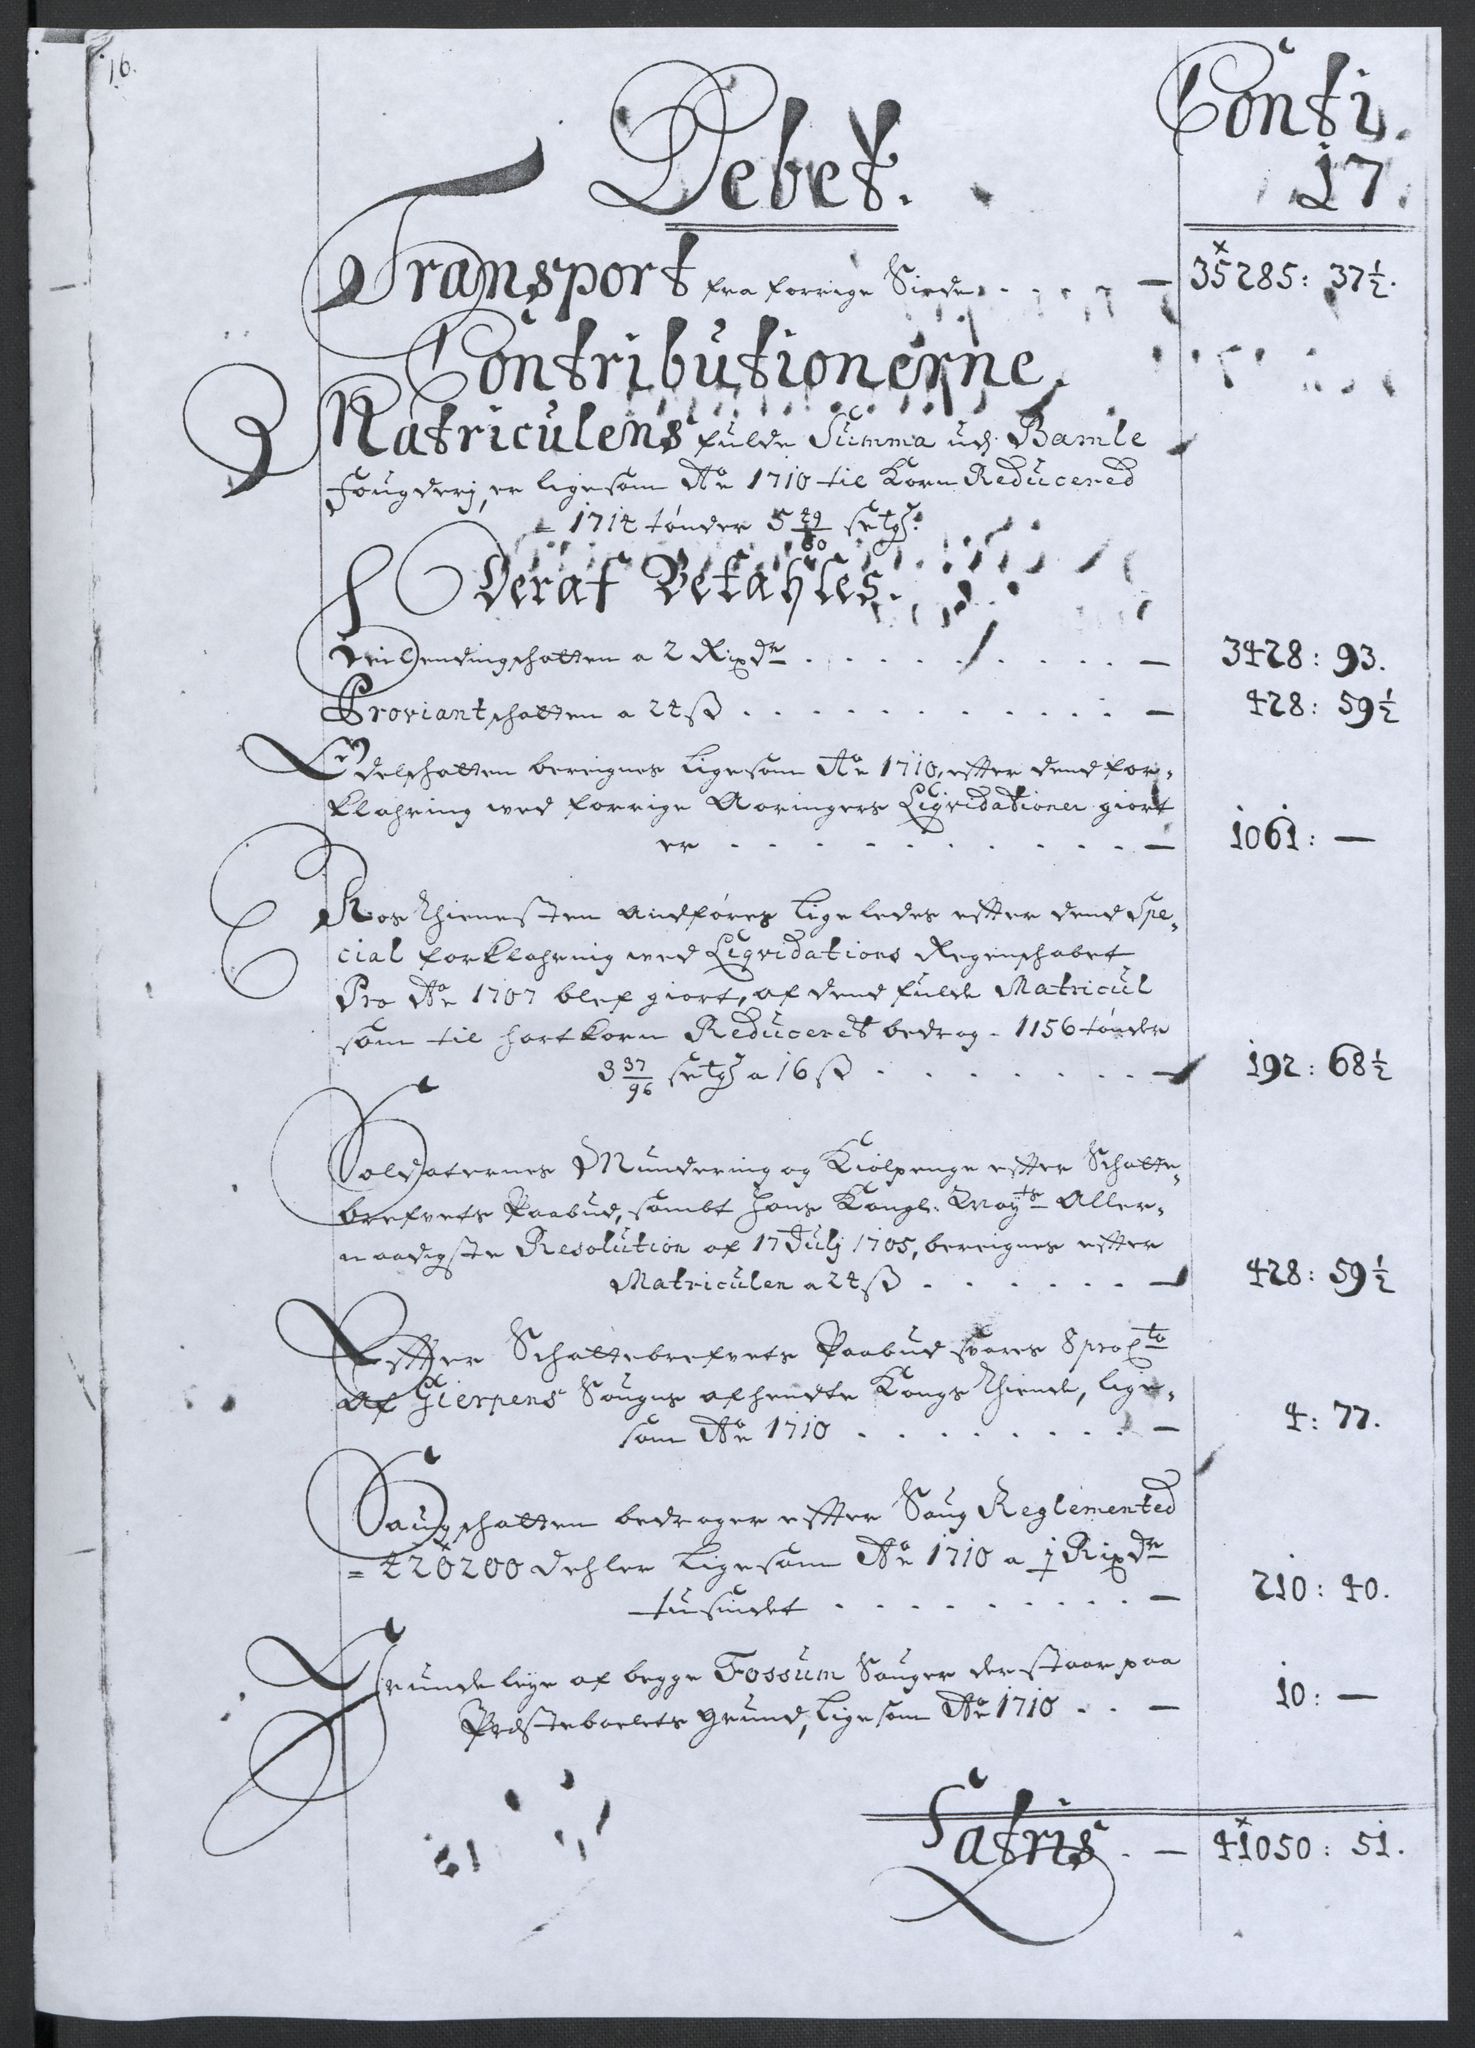 16.
Conti.
Debet. 17.
Transport fra forrige Siide . . . . — 35285: 37½.
Contributionerne
Matriculens fulde Summa udj Bamle
Fougderj, er ligesom Ao 1710 til Korn Reducered
= 1714 tønder 5 29/80 setg.
Deraf Betahles.
Leilendingschatten a 2 Rixdr . . . . . . . . . — 3428: 93.
Proviantschatten a 24 sk . . . . . . . . . . . — 428: 59½
Odelschatten bereignes ligesom Ao 1710, efter dend for-
klahring ved forrige Aaringers Liqvidationer giort
er . . . . . . . . . . . — 1061: —
Ros thienesten andføres ligeledes efter dend Spe-
cial forklahring ved Liqvidations Regenschabet
Pro Ao 1707 blef giort, af dend fulde Matricul
som til hartkorn Reduceret bedrog - 1156 tønder
3 37/96 setg a 16 sk . . . . . . . — 192: 68½
Soldaternes Mundering og Kiolpenge efter Schatte-
brefvets Paabud, sambt Hans Kongl. Mayts Aller-
naadigste Resolution af 17 Julj 1705, bereignes efter
Matriculen a 24 sk . . . . . . . — 428: 59½
Efter Schattebrefvets Paabud svares 8 pro Cto
af Gierpens Sougns afhendte Kongs Thiende, lige-
som Ao 1710 . . . . . . . . — 4: 77.
Saugschatten bedrager efter Saug Reglemented
= 420200 dehler ligesom Ao 1710 a ½ Rixdr
tusindet . . . . . . . . . — 210: 40.
Grundeleye af begge Fossum Sauger der staar paa
Præstebolets grund, ligesom Ao 1710 . . — 10: —
Latris . — 41050: 51.